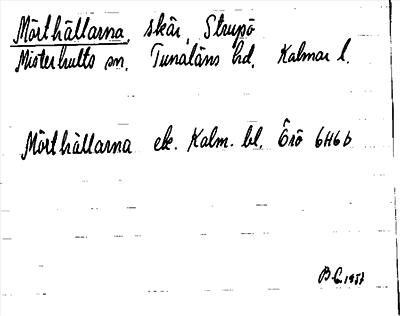 Mörthällarna, skär, Strupö
Misterhults sn, Tunaläns hd, Kalmar l.
Mörthällarna ek. Kalm. bl. Örö 6H6b